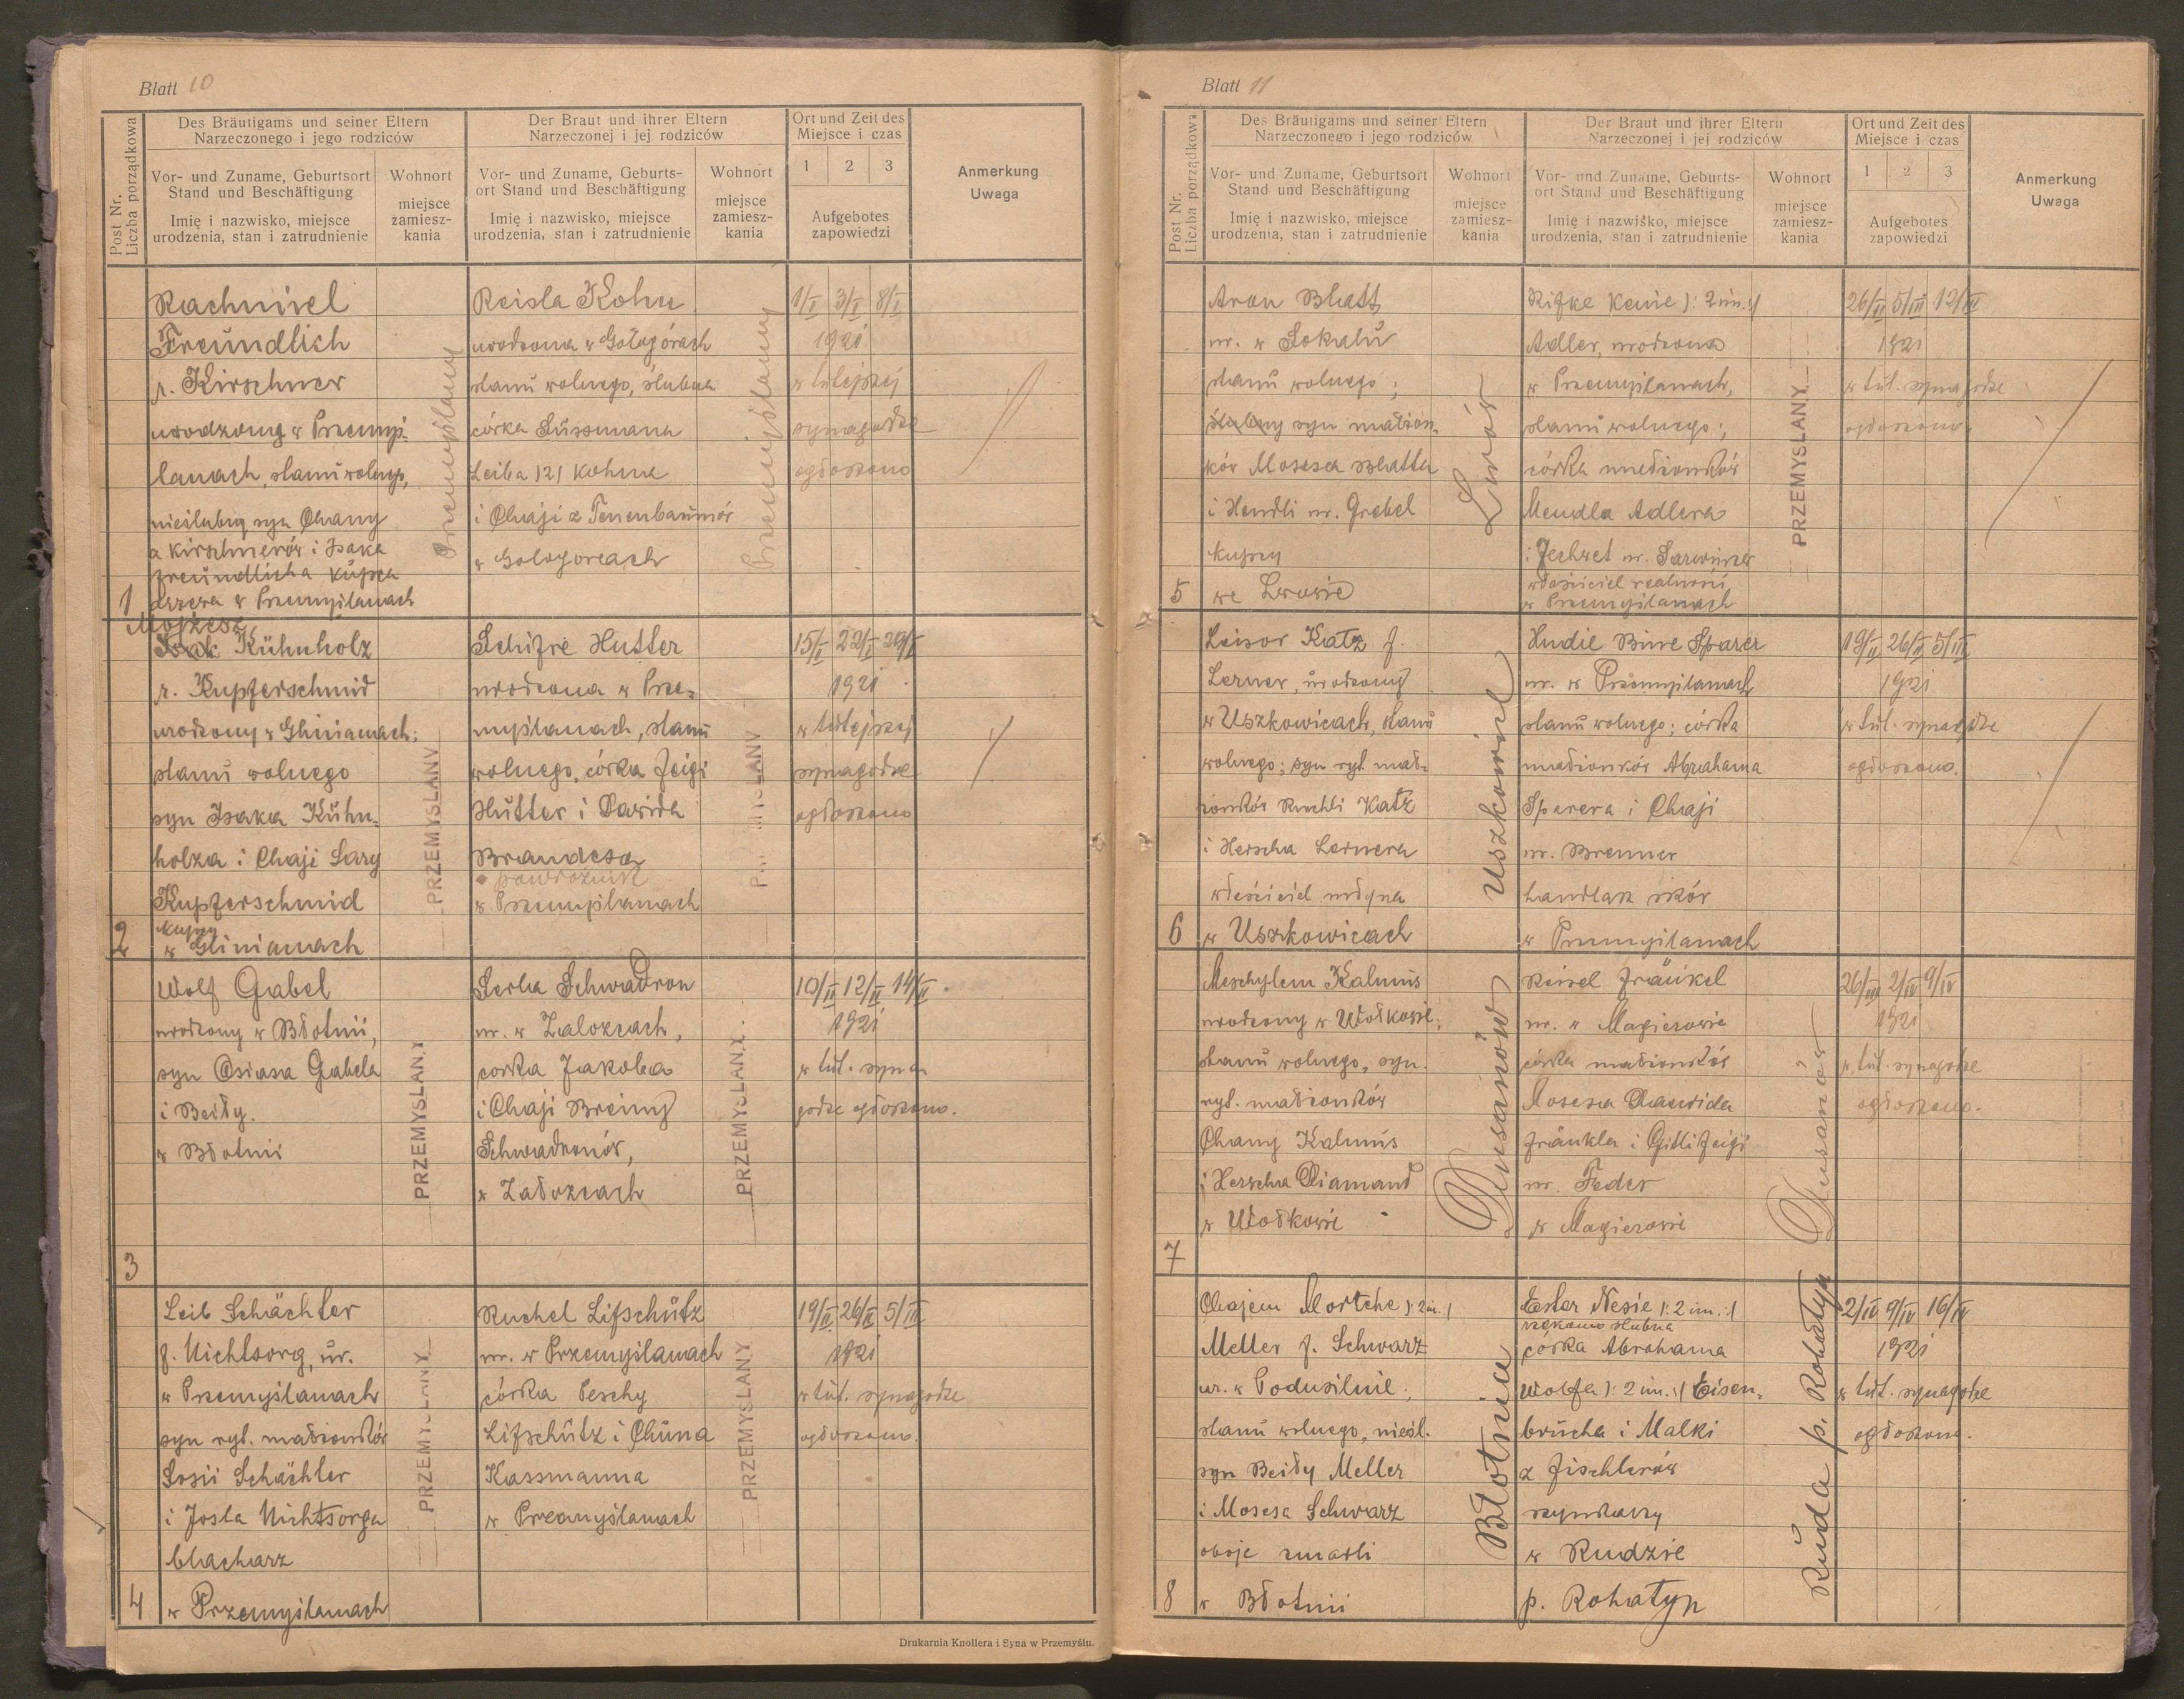 Blatt 10
Post Nr.
Liczba porządkowa
Des Bräutigams und seiner Eltern
Narzeczonego i jego rodziców
Der Braut und ihrer Eltern
Narzeczonej i jej rodziców
Ort und Zeit des
Miejsce i czas
Vor- und Zuname, Geburtsort
Stand und Beschäftigung
Imię i nazwisko, miejsce
urodzenia, stan i zatrudnienie
Wohnort
miejsce
zamiesz-
kania
Vor- und Zuname, Geburts-
ort Stand und Beschäftigung
Imię i nazwisko, miejsce
urodzenia, stan i zatrudnienie
Wohnort
miejsce
zamiesz-
kania
1 2 3
Aufgebotes
zapowiedzi
Anmerkung
Uwaga
1
Rachmiel
Freundlich
r. Kirschner
urodzony w Przemyś-
lanach, stanu wolnego,
nieślubny syn Chany
z Kirschnerów i Isaka
Freundlicha kupca
drzewa w Przemyślanach
Przemyślany
Reisla Kohn
urodzona w Gołogórach
stanu wolnego, ślubna
córka Süssmana
Leiba /2/ Kohna
i Chaji z Tenenbaumów
w Gologorach
Przemyślany
1/I 3/I 8/I
1921
w tutejszej
synagodze
ogłoszono
2
Mojżesz
Isak Kühnholz
r. Kupferschmid
urodzony w Glinianach;
stanu wolnego
syn Isaka Kühn-
holza i Chaji Sary
Kupferschmid
kupcy
w Glinianach
PRZEMYSLANY
Schifre Hutter
urodzona w Prze-
myślanach, stanu
wolnego, córka Feigi
Hutter i Dawida
Brandesa
powroźnik
w Przemyślanach
15/I 22/I 29/I
1921
w tutejszej
synagodze
ogłoszono
3
Wolf Gabel
urodzony w Błotnii,
syn Osiasa Gabela
i Beiły.
w Błotnii
PRZEMYSLANY
Serla Schwadron
ur. w Zalozcach,
corka Jakoba
i Chaji Breiny
Schwadronów,
w Załozcach
PRZEMYSLANY
10/II 12/II 14/II
1921
w tut. syna-
godze ogłoszono.
4
Leib Schächter
f. Nichtsorg, ur.
w Przemyślanach
syn ryt. małżonków
Sosii Schächter
i Josla Nichtsorga
blacharz
w Przemyślanach
PRZEMYSLANY
Ruchel Lifschütz
ur. w Przemyślanach
córka Peschy
Lifschütz i Chuna
Kassmanna
w Przemyślanach
PRZEMYSLANY
19/II 26/II 5/III
1921
w tut. synagodze
ogłoszono.
Drukarnia Knollera i Syna w Przemyślu.
Blatt 11
Post Nr.
Liczba porządkowa
Des Bräutigams und seiner Eltern
Narzeczonego i jego rodziców
Der Braut und ihrer Eltern
Narzeczonej i jej rodziców
Ort und Zeit des
Miejsce i czas
Vor- und Zuname, Geburtsort
Stand und Beschäftigung
Imię i nazwisko, miejsce
urodzenia, stan i zatrudnienie
Wohnort
miejsce
zamiesz-
kania
Vor- und Zuname, Geburts-
ort Stand und Beschäftigung
Imię i nazwisko, miejsce
urodzenia, stan i zatrudnienie
Wohnort
miejsce
zamiesz-
kania
1 2 3
Aufgebotes
zapowiedzi
Anmerkung
Uwaga
5
Aron Blatt,
ur. w Sokalu
stanu wolnego;
ślubny syn małżon-
ków Mosesa Blatta
i Hendli ur. Grebel
kupcy
we Lwowie
Lwów
Rifke Kenie /: 2 im.:/
Adler, urodzona
w Przemyślanach,
stanu wolnego;
córka małżonków
Mendla Adlera
i Jechwet ur.
właściciel realności
w Przemyślanach
PRZEMYSLANY
26/II 5/III 12/III
1921
w tut. synagodze
ogłoszono.
6
Leisor Katz f.
Lerner, urodzony
w Uszkowicach, stanu
wolnego; syn ryt. mał-
żonków Ruchli Katz
i Herscha Lernera
właściciel młyna
w Uszkowicach
Uszkowice
Hudie Bine Sparer
ur. w Przemyślanach
stanu wolnego; córka
małżonków Abrahama
Sparera i Chaji
ur. Brenner
handlarz skór
w Przemyślanach
19/II 26/II 5/III
1921
w tut. synagodze
ogłoszono.
7
Meschylem Kalmus
urodzony w Wołkowie;
stanu wolnego, syn
ryt. małżonków
Chany Kalmus
i Herscha Diamand
w Wołkowie
Dusanów
Reisel Fränkel
ur. w Magierowie
córka małżonków
Mosesa Dawida
Fränkla i Gitli Feigi
ur. Feder
w Magierowie
Dusanów
26/III 2/IV 9/IV
1921
w tut. synagodze
ogłoszono.
8
Chajem Mortche /: 2 im.:/
Meller f. Schwarz
ur. w Podusilnie;
stanu wolnego, nieśl.
syn Beiły Meller
i Mosesa Schwarz
oboje zmarli
w Błotnii
Błotnia
Ester Nesie /: 2 im.:/
rzekomo ślubna
córka Abrahama
Wolfa /: 2 im.:/ Eisen-
brucha i Malki
z Fischlerów
szynkarzy
w Rudzie
p. Rohatyn
Ruda p. Rohatyn
2/IV 9/IV 16/IV
1921
w tut. synagodze
ogłoszono.